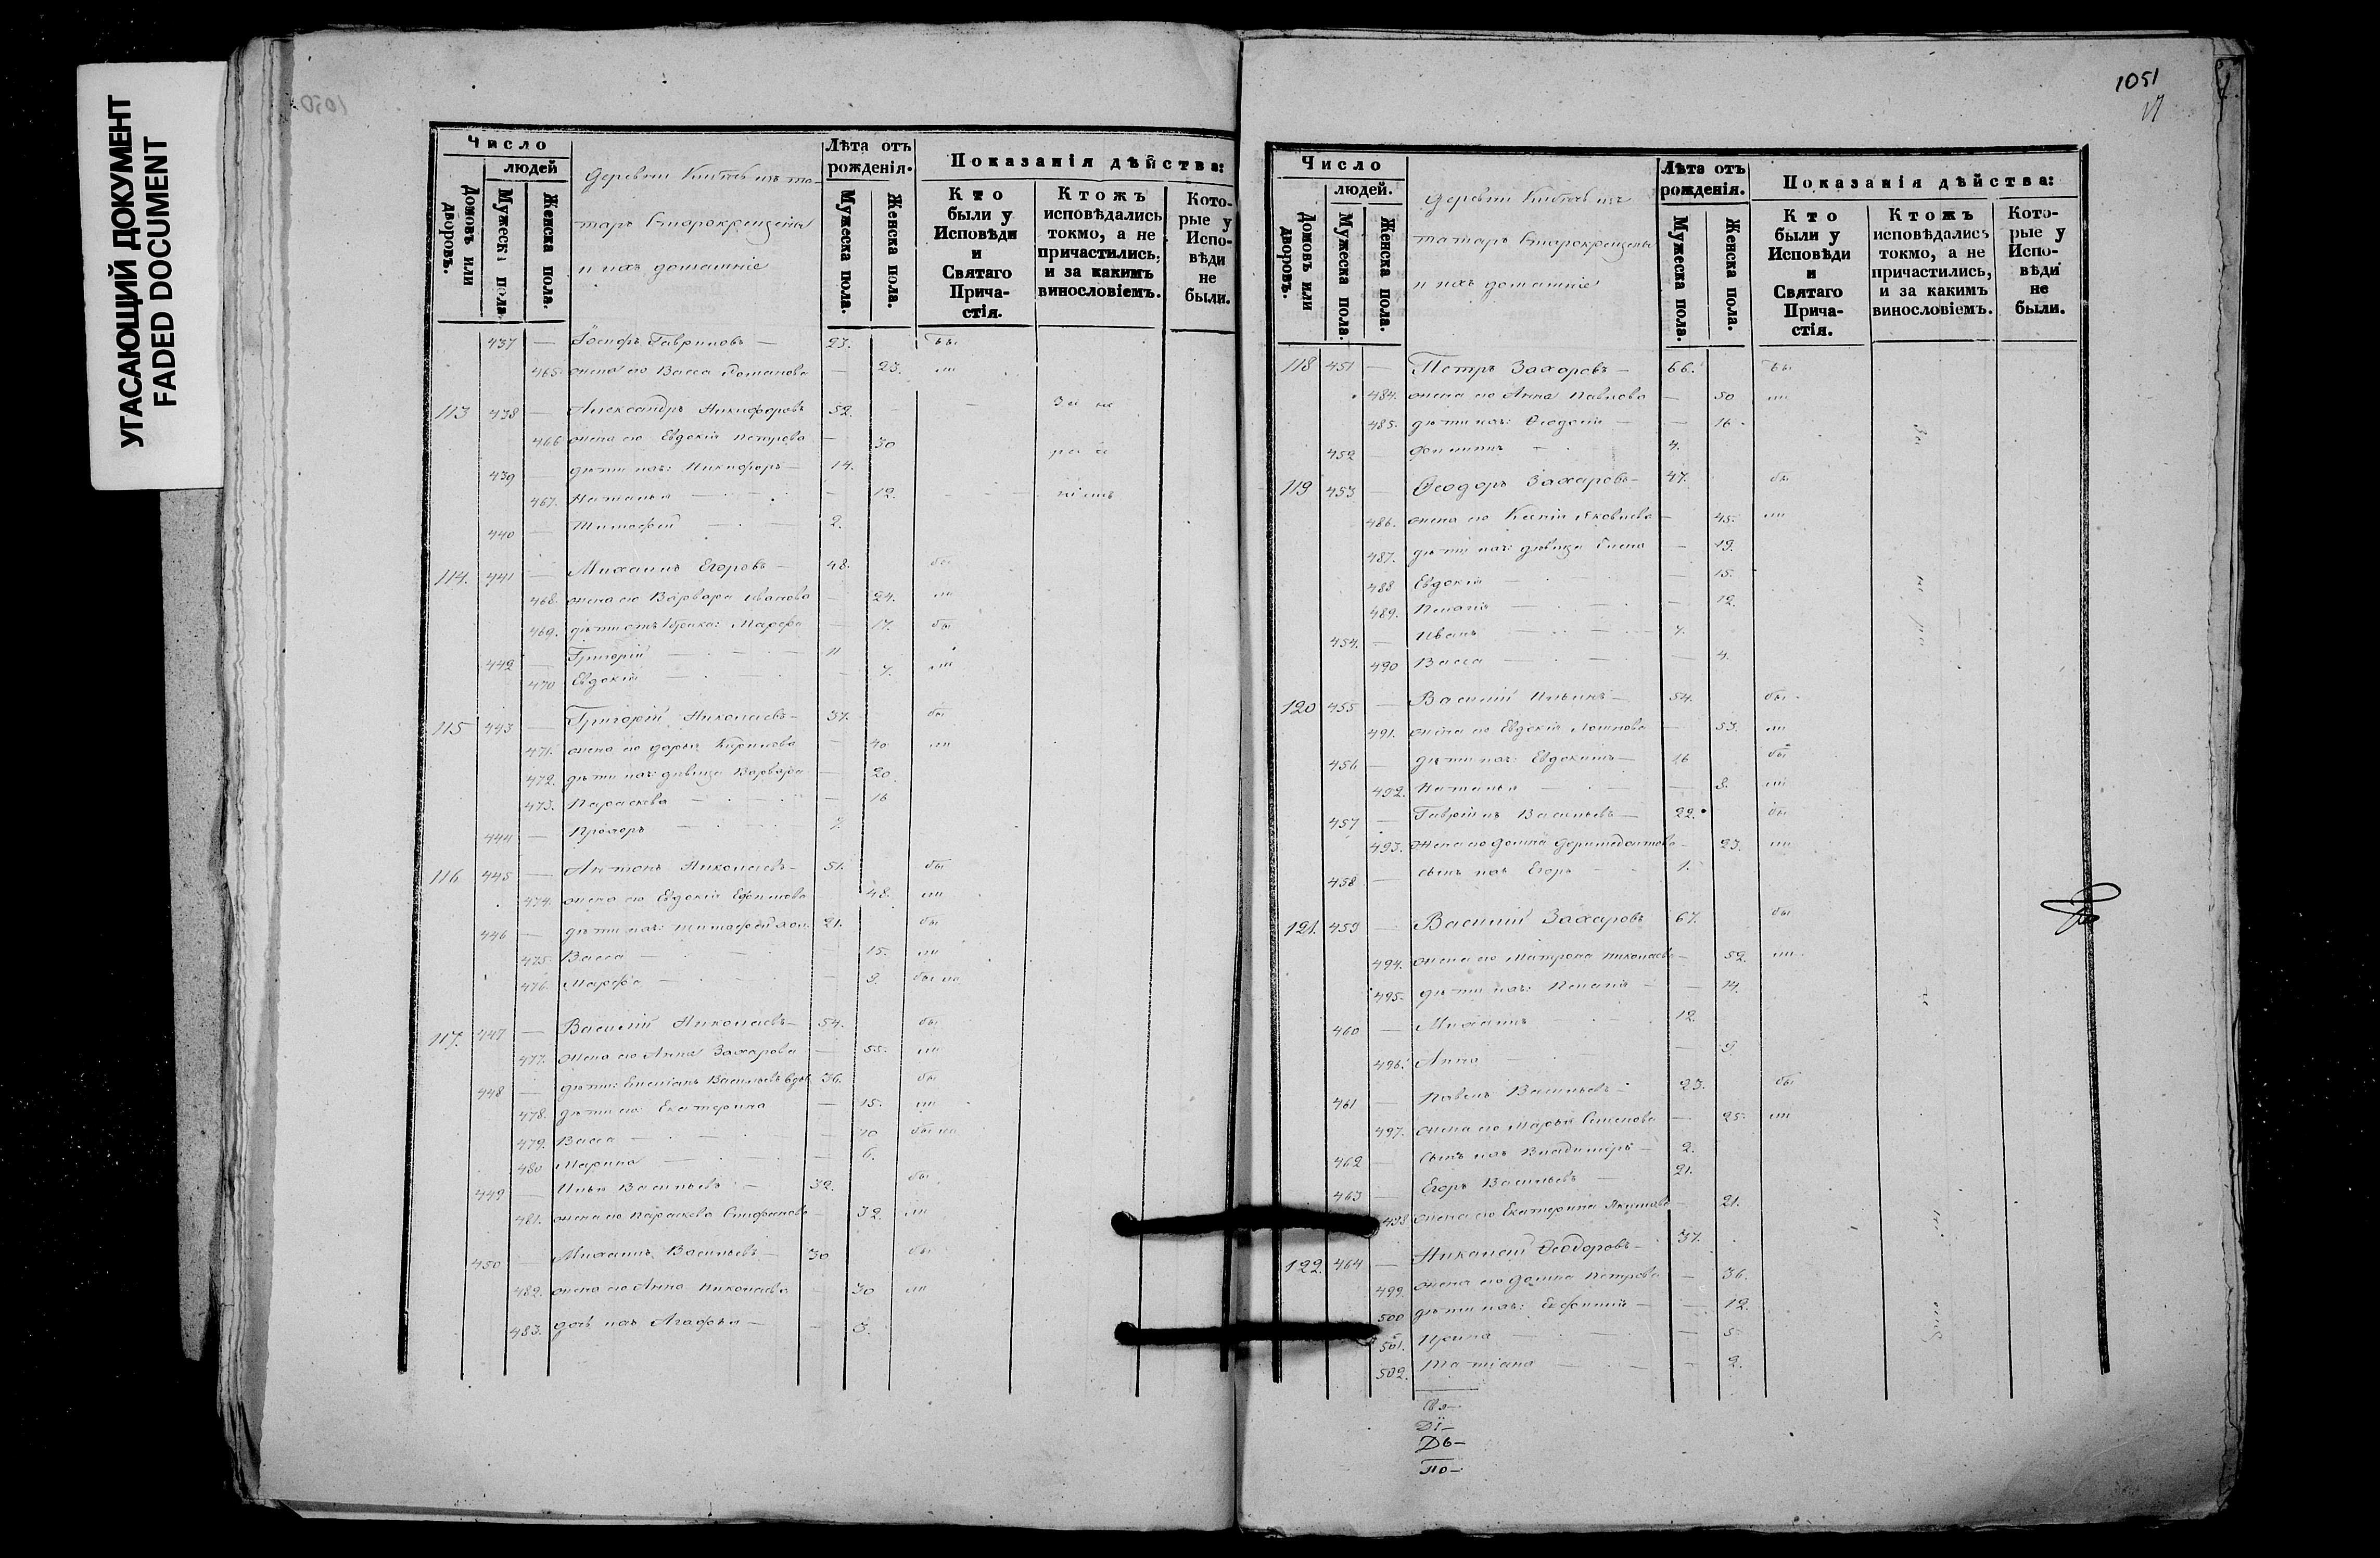 УГАСАЮЩИЙ ДОКУМЕНТ
FADED DOCUMENT
Число
людей
Домовъ или дворовъ.
Мужеска пола.
Женска пола.
Деревни
таръ Старокрещены
и ихъ домашніе
Лѣта отъ рожденія.
Мужеска пола.
Женска пола.
Показанія дѣйства:
Кто были у Исповѣди и Святаго Причастія.
Ктожъ исповѣдались токмо, а не причастились, и за какимъ винословіемъ.
Которые у Исповѣди не были.
437 — Іосифъ Гавриловъ — 23. бы
465. жена его Васса Романова — 23. ли
113 438 — Александръ Никифоровъ 52.
466 жена его Евдокія Петрова — 30
439 дѣти ихъ: Никифоръ — 14.
467. Наталья — 12.
440 — Тимофей — 2.
114. 441 — Михаилъ Егоровъ — 48. бы
468. жена его Варвара Иванова — 24. ли
469. дѣти Марфа — 17. бы
442 — Григорій — 11 ли
470 Евдокія — 7.
115 443 — Григорій Николаевъ — 37. бы
471. жена его Дарья Кирилова — 40 ли
472. дѣти ихъ: дѣвица Варвара — 20.
473. Параскева — 16
444 — Прохоръ
116 445 — Антонъ Николаевъ — 51. бы
474. жена его Евдокія Ефимова 48. ли
446 — дѣти ихъ: Тимофей хол. 21. бы
475. Васса — 15. ли
476. Марфа — 9. были
117. 447 — Василій Николаевъ — 54. бы
477. жена его Анна Захарова — 55. ли
448 — дѣти: Васильевъ вдов. 36. бы
478. дѣти его Екатерина — 15. ли
479. Васса — 10 были
480 Марина — 6.
449 — Илья Васильевъ — 32. бы
481. жена его Параскева Стефанова 32. ли
450 — Михаилъ Васильевъ — 30 бы
482. жена его Анна Николаева — 30 ли
483. дочь ихъ Агафья — 3.
1051
Число
людей.
Домовъ или дворовъ.
Мужеска пола.
Женска пола.
Деревни изъ
татаръ Старокрещены
и ихъ домашніе
Лѣта отъ рожденія.
Мужеска пола.
Женска пола.
Показанія дѣйства:
Кто были у Исповѣди и Святаго Причастія.
Ктожъ исповѣдались токмо, а не причастились, и за какимъ винословіемъ.
Которые у Исповѣди не были.
118 451 — Петръ Захаровъ — 66. бы
484. жена его Анна Павлова — 50 ли
485. дѣти ихъ: — 16.
452 — Филиппъ — 4.
119 453 — Ѳеодоръ Захаровъ — 47. бы
486. жена его Ксенія Яковлева — 45. ли
487. дѣти ихъ: дѣвица Елена — 19.
488 Евдокія — 15.
489. Пелагія — 12.
454. — Иванъ — 7.
490 Васса — 4.
120 455 — Василій Ильинъ — 54. бы
491. жена его Евдокія — 53. ли
456 — дѣти ихъ: Евдокимъ — 16 бы
492. Наталья — 8. ли
457 — Гавріилъ Васильевъ — 22. бы
493. жена его Домна — 23. ли
458 — сынъ ихъ Егоръ — 1.
121. 459 — Василій Захаровъ 67. бы
494. жена его Матрона Николаева — 52. ли
495. дѣти ихъ: Пелагія — 14.
460 — Михаилъ — 12.
496. Анна — 9.
461 — Павелъ Васильевъ — 23. бы
497. жена его Марья Семенова — 25. ли
462 — сынъ ихъ Владимиръ — 2.
463 — Егоръ Васильевъ — 21.
498 жена его Екатерина — 21.
122. 464 — Николай Ѳеодоровъ — 37.
499. жена его Домна Петрова — 36.
500 дѣти ихъ: — 12.
501. Ирина — 5
502. Татіана — 2.
Свя—
Дї—
Дь—
По—